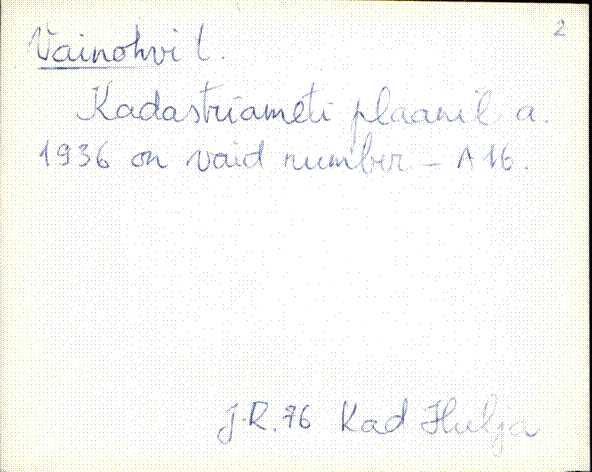 2
Vainohvi t.
Kadastriameti plaanil a.
1936 on vaid number - A 16.
J.R. 76 Kad Hulja